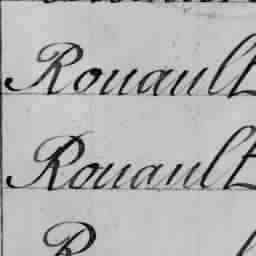 Rouault
Rouault
R